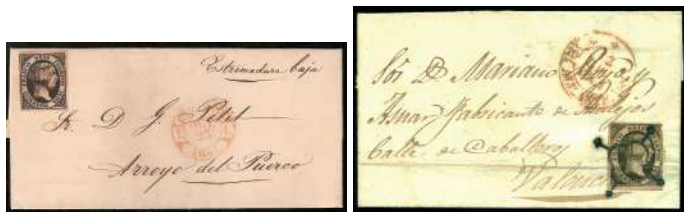 Estremadura baja
Sr. D. G. Petit
Arroyo del Puerco
Sor. D. Mariano Royo y
Aznar Fabricante de
Calle de Caballeros
Valencia